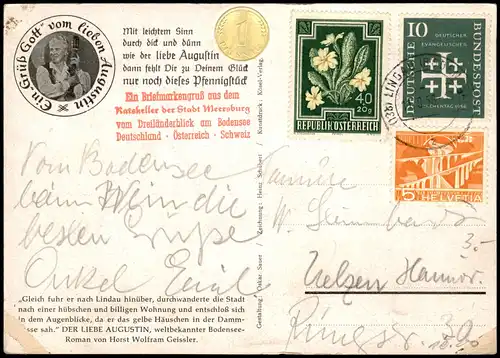 Ein Grüß Gott vom lieben Augustin
Mit leichtem Sinn
durch dick und dünn
wie der liebe Augustin
dann fehlt Dir zu Deinem Glück
nur noch dieses Pfennigstück
1
Ein Briefmarkengruß aus dem
Ratskeller der Stadt Meersburg
vom Dreiländerblick am Bodensee
Deutschland · Österreich · Schweiz
Vom Bodensee
beim Wein die
besten Grüße
Onkel Emil
"Gleich fuhr er nach Lindau hinüber, durchwanderte die Stadt
nach einer hübschen und billigen Wohnung und entschloß sich
in dem Augenblicke, da er das gelbe Häuschen in der Damm-
sah." DER LIEBE AUGUSTIN, weltbekannter Bodensee-
Roman von Horst Wolfram Geissler.
Gesamtgestaltung: Oskar Sauer / Zeichnung: Heinz Schubert / Kunstdruck: Kösel-Verlag
40
20 g
REPUBLIK ÖSTERREICH
10
DEUTSCHER
EVANGELISCHER
KIRCHENTAG 1956
DEUTSCHE
BUNDESPOST
5
HELVETIA
Familie
W.
Uelzen Hannov.